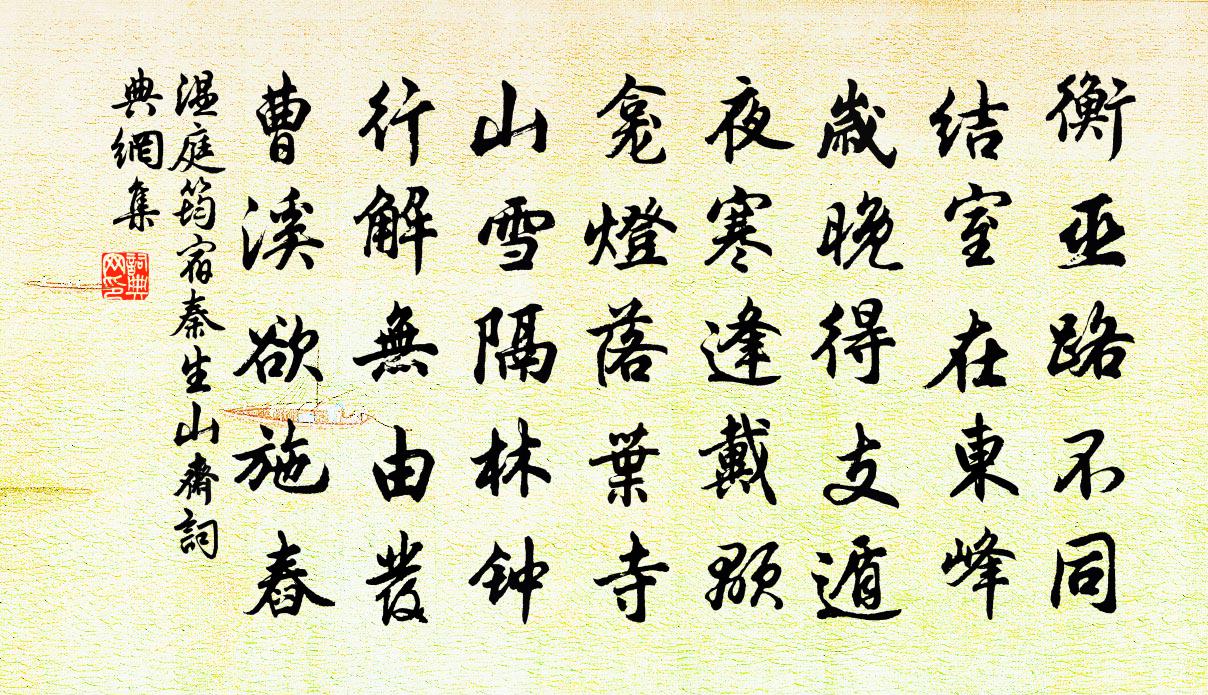 衡巫路不同
结室在東峰
歲晚得支遁
夜寒逢戴顒
龕燈落葉寺
山雪隔林钟
行解無由發
曹溪欲施舂
温庭筠宿秦生山齋詞
典網集
詞典
网印